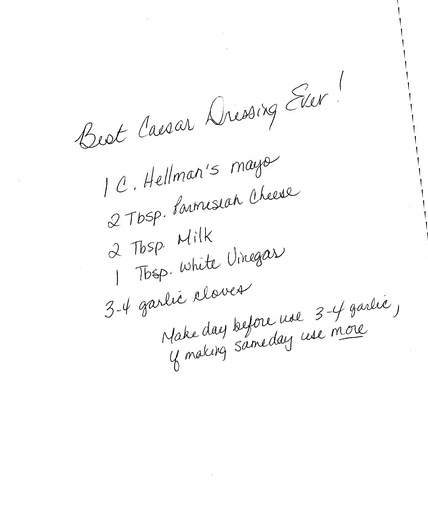 Best Caesar Dressing Ever!
1 C. Hellman's mayo
2 Tbsp. Parmesian Cheese
2 Tbsp Milk
1 Tbsp. White Vinegar
3-4 garlic cloves
Make day before use 3-4 garlic,
if making sameday use more